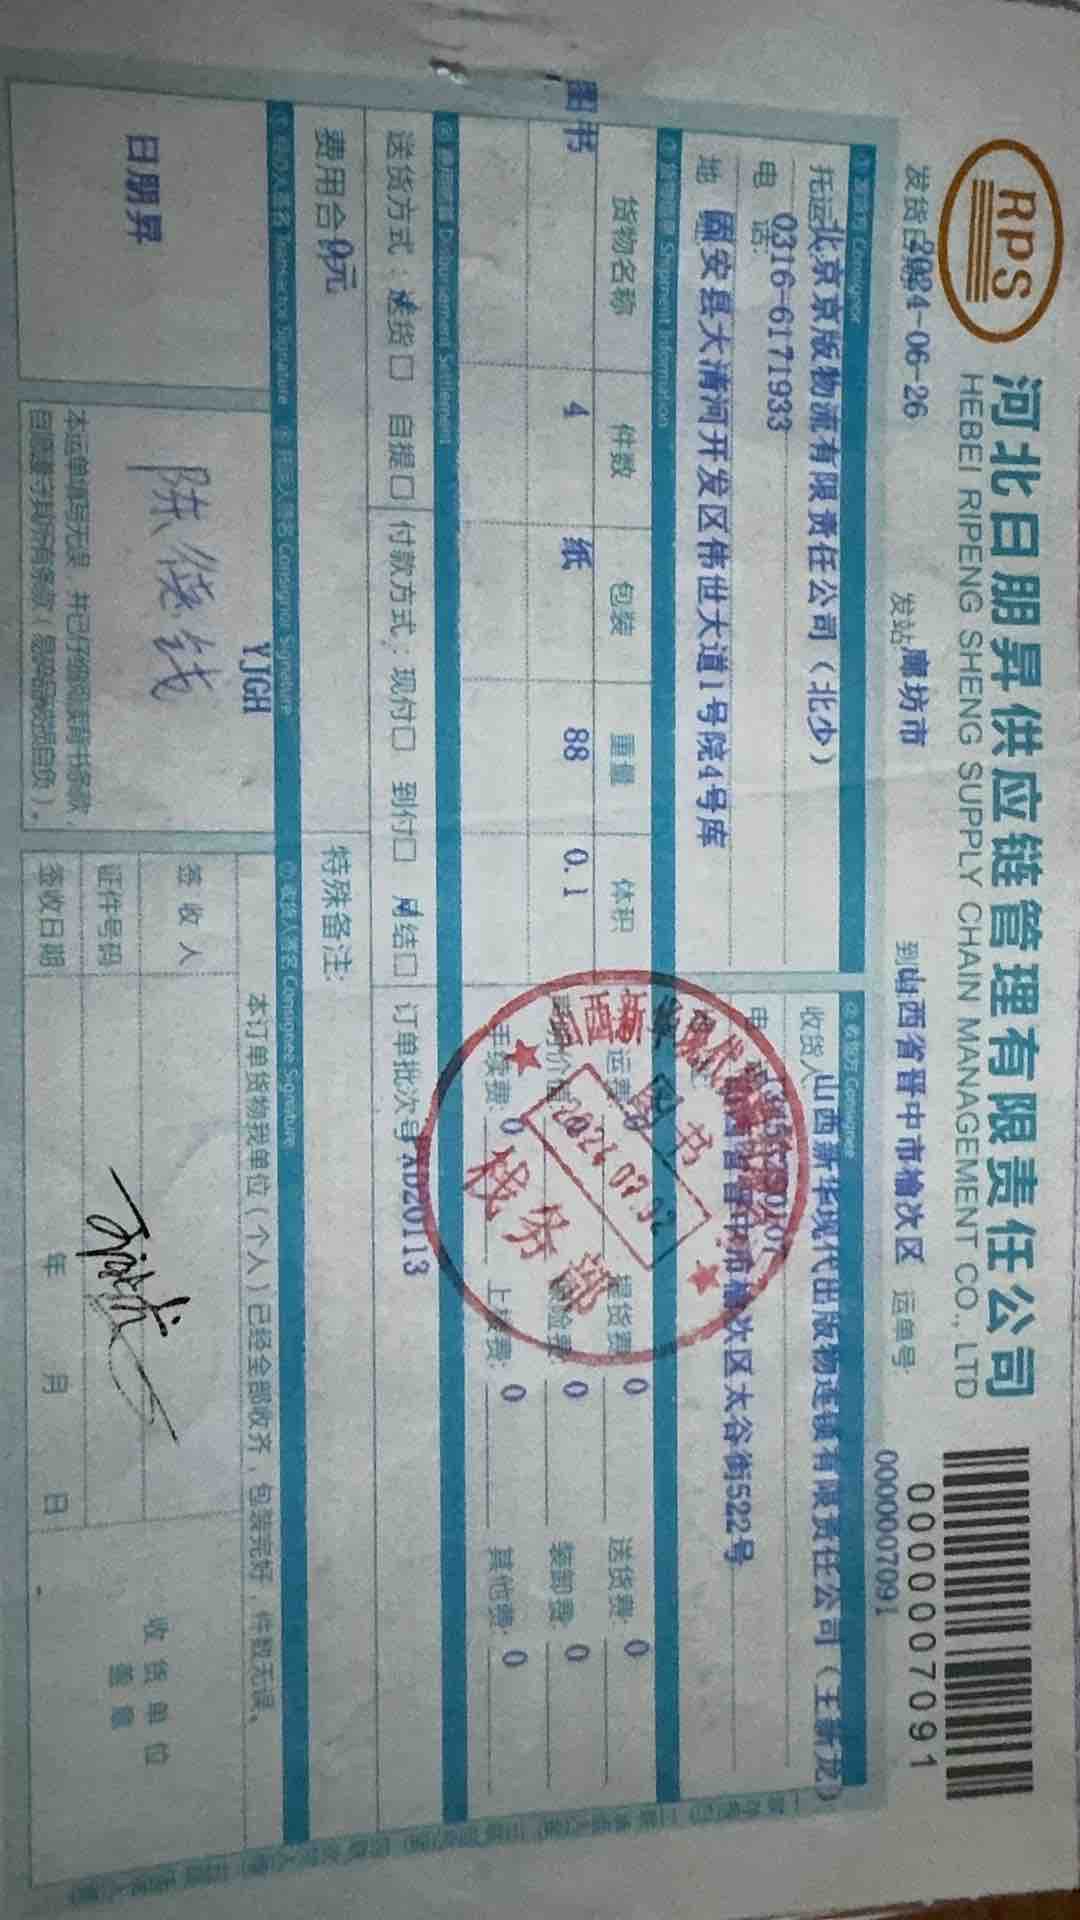 RPS
河北日朋昇供应链管理有限责任公司
HEBEI RIPENG SHENG SUPPLY CHAIN MANAGEMENT CO., LTD
0000007091
发货日期 2024-06-26 发站 廊坊市 到 山西省晋中市榆次区 运单号: 0000007091
① 发货方 Consignor ② 收货方 Consignee
托运 北京京版物流有限责任公司（北少） 收货人 山西新华现代出版物连锁有限责任公司（王新龙）
电话: 0316-6171933
地 固安县大清河开发区伟世大道1号院4号库 山西省晋中市榆次区太谷街522号
③ 货物信息 Shipment Information
货物名称 件数 包装 重量 体积 运费: 提货费: 0 送货费: 0
图书 4 纸 88 0.1 保险费: 0 装卸费: 0
手续费: 0 上楼费: 0 其他费: 0
图书
2024.07.02
送货方式: 送货□ 自提□ 付款方式: 现付□ 到付□ 月结□ 订单批次号 XD20113
费用合 0元 特殊备注:
Consignor Signature Consignee Signature
日朋昇
YJGH
本运单填写无误，并已仔细阅读背书条款，
本订单货物我单位（个人）已经全部收齐，包装完好，件数无误。
签收人
证件号码
签收日期 年 月 日
收货单位
签章